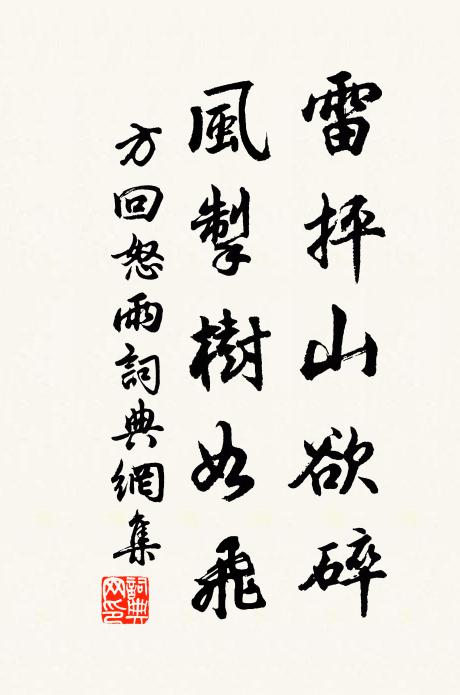 雷抨山欲碎
風掣樹如飛
方回怒雨詞典網集
詞典网印